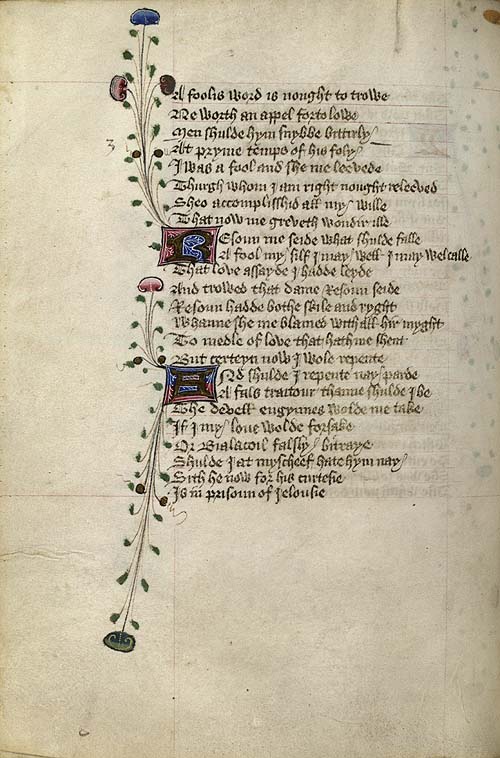 A foolis word is nought to trowe
Ne worth an appel forto lowe
Men shulde hym snybbe bittirly
At pryme temps of his foly
I was a fool and she me leevede
Thurgh whom I am right nought releeved
Sheo accomplisshid all my wille
That now me greveth wondir ille
Resoun me seide what shulde falle
A fool my silf I may well I may wel calle
That love assayde I hadde leyde
And trowed that dame Resoun seide
Resoun hadde bothe skile and ryght
Whanne she me blamed with all hir myght
To medle of love that hath me shent
But certeyn now I wole repente
And shulde I repente nay parde
A fals traitour thanne shulde I be
The develes engynnes wolde me take
If I my love wolde forsake
Or Bialacoil falsly bitraye
Shulde I at myscheef hate hym nay
Sith he now for his curtesie
Is in prisoun of Jelousie
3